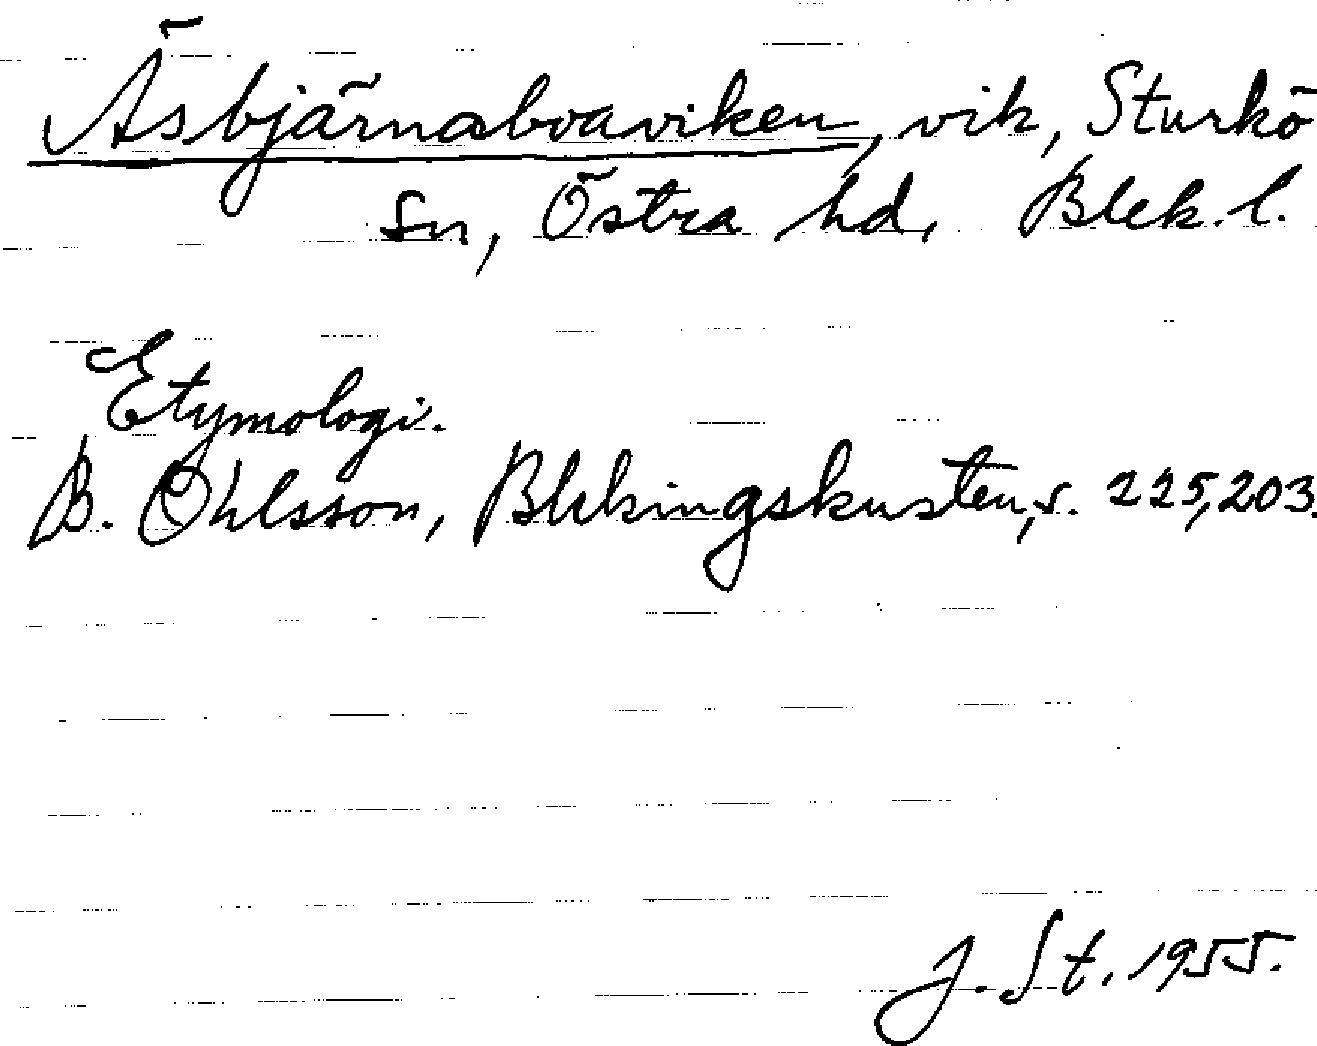 Äsbjärnaboaviken, vik, Sturkö
sn, Östra hd, Blek. l.
Etymologi.
B. Ohlsson, Blekingskusten, s. 225, 203.
J. St. 1955.